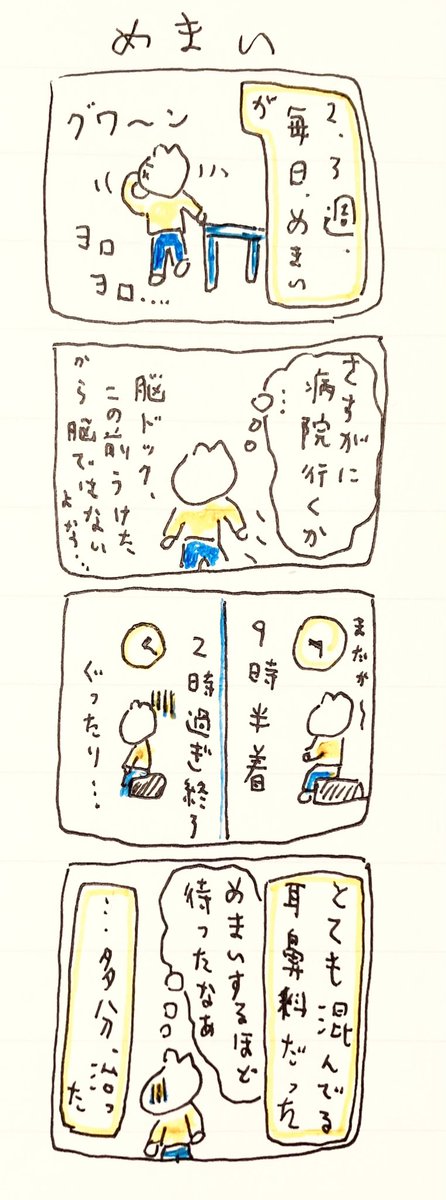 めまい
2、3週、
毎日、めまい
が
グワ〜ン
ヨロ
ヨロ....
さすがに
病院行くか
…
脳ドック、
この前うけた
から脳ではない
よな…
まだか〜
9時半着
2時過ぎ終了
ぐったり…
とても混んでる
耳鼻科だった
めまいするほど
待ったなぁ
…多分、治っ
た